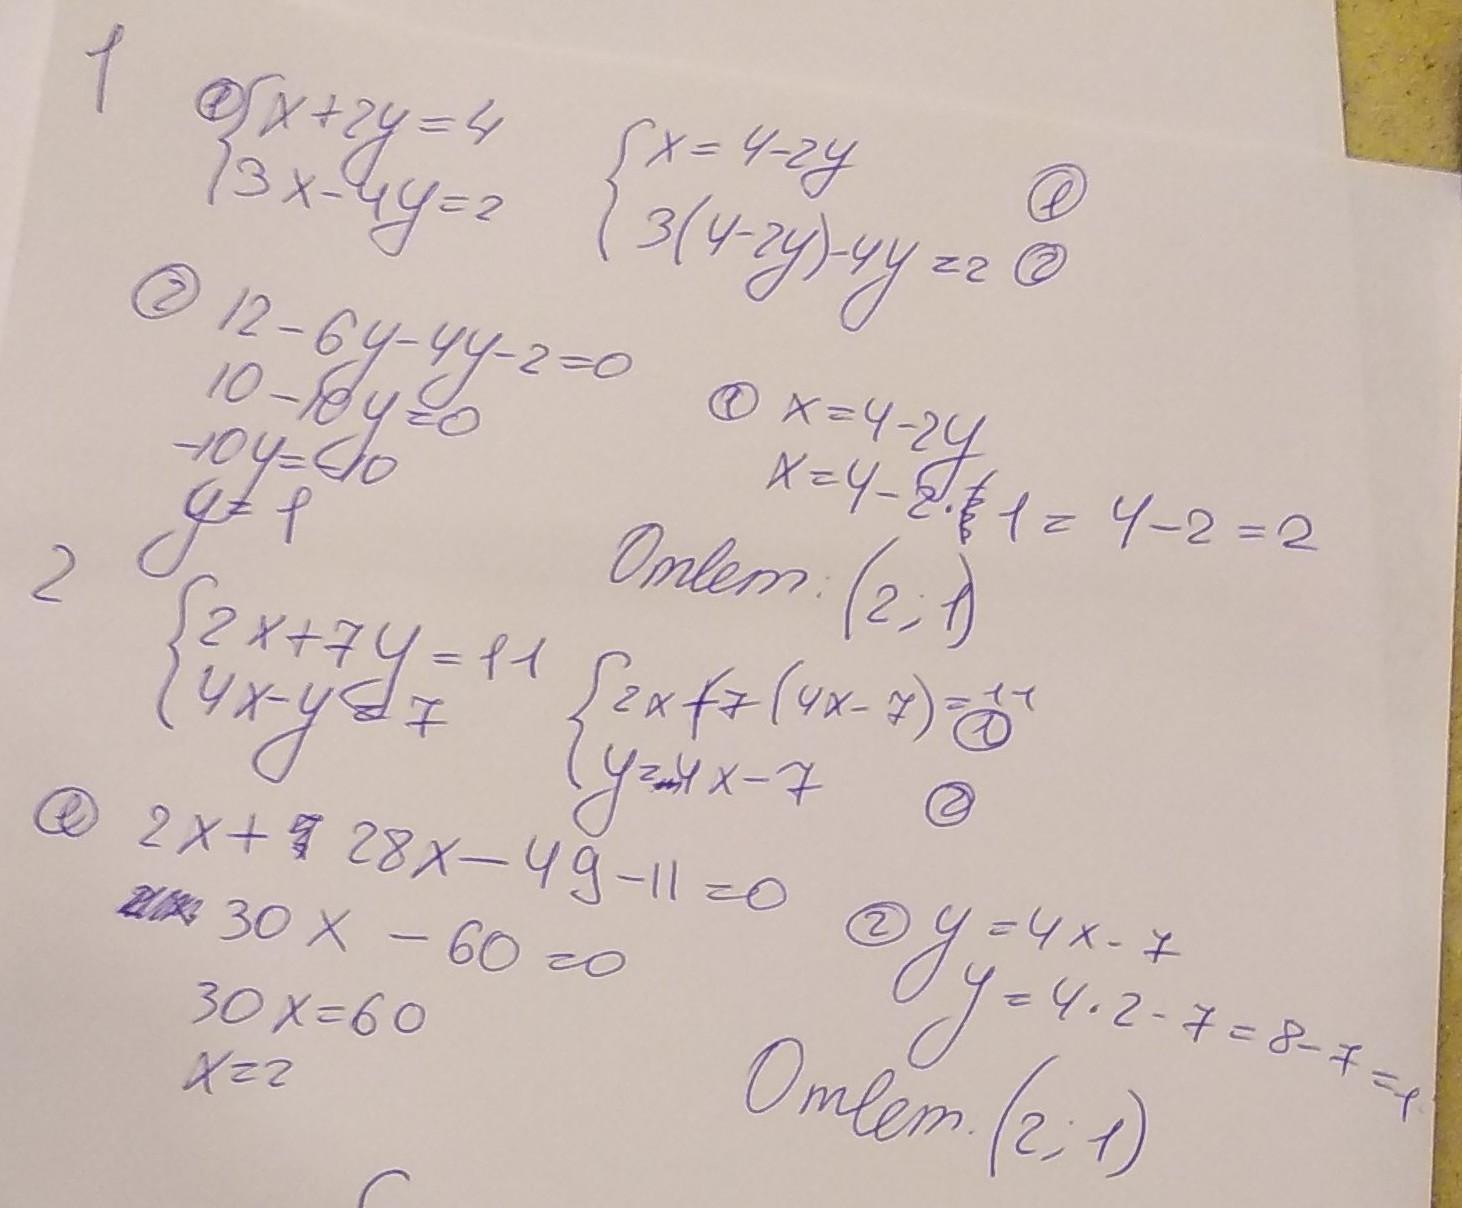 1
① { x+2y=4
3x-4y=2
{ x=4-2y ①
3(4-2y)-4y=2 ②
② 12-6y-4y-2=0
10-10y=0
-10y=-10
y=1
① x=4-2y
x=4-2·1=4-2=2
Ответ: (2;1)
2
{ 2x+7y=11
4x-y=7
{ 2x+7(4x-7)=11 ①
y=4x-7 ②
① 2x+28x-49-11=0
30x-60=0
30x=60
x=2
② y=4x-7
y=4·2-7=8-7=1
Ответ. (2;1)